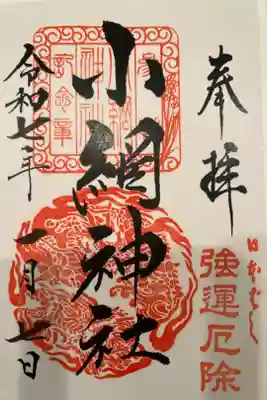 奉拝
日本ばし
強運厄除
小網神社
令和七年
一月七日